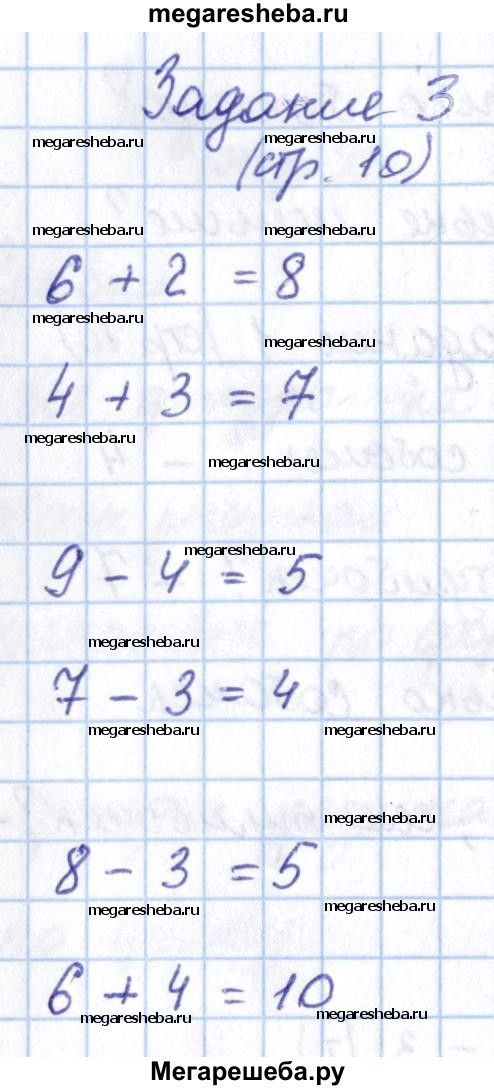 megaresheba.ru
Задание 3
megaresheba.ru megaresheba.ru
(стр. 10)
megaresheba.ru megaresheba.ru
6 + 2 = 8
megaresheba.ru megaresheba.ru
4 + 3 = 7
megaresheba.ru megaresheba.ru
megaresheba.ru
9 - 4 = 5
megaresheba.ru
7 - 3 = 4
megaresheba.ru megaresheba.ru
megaresheba.ru
8 - 3 = 5
megaresheba.ru megaresheba.ru
6 + 4 = 10
megaresheba.ru megaresheba.ru
Мегарешеба.ру